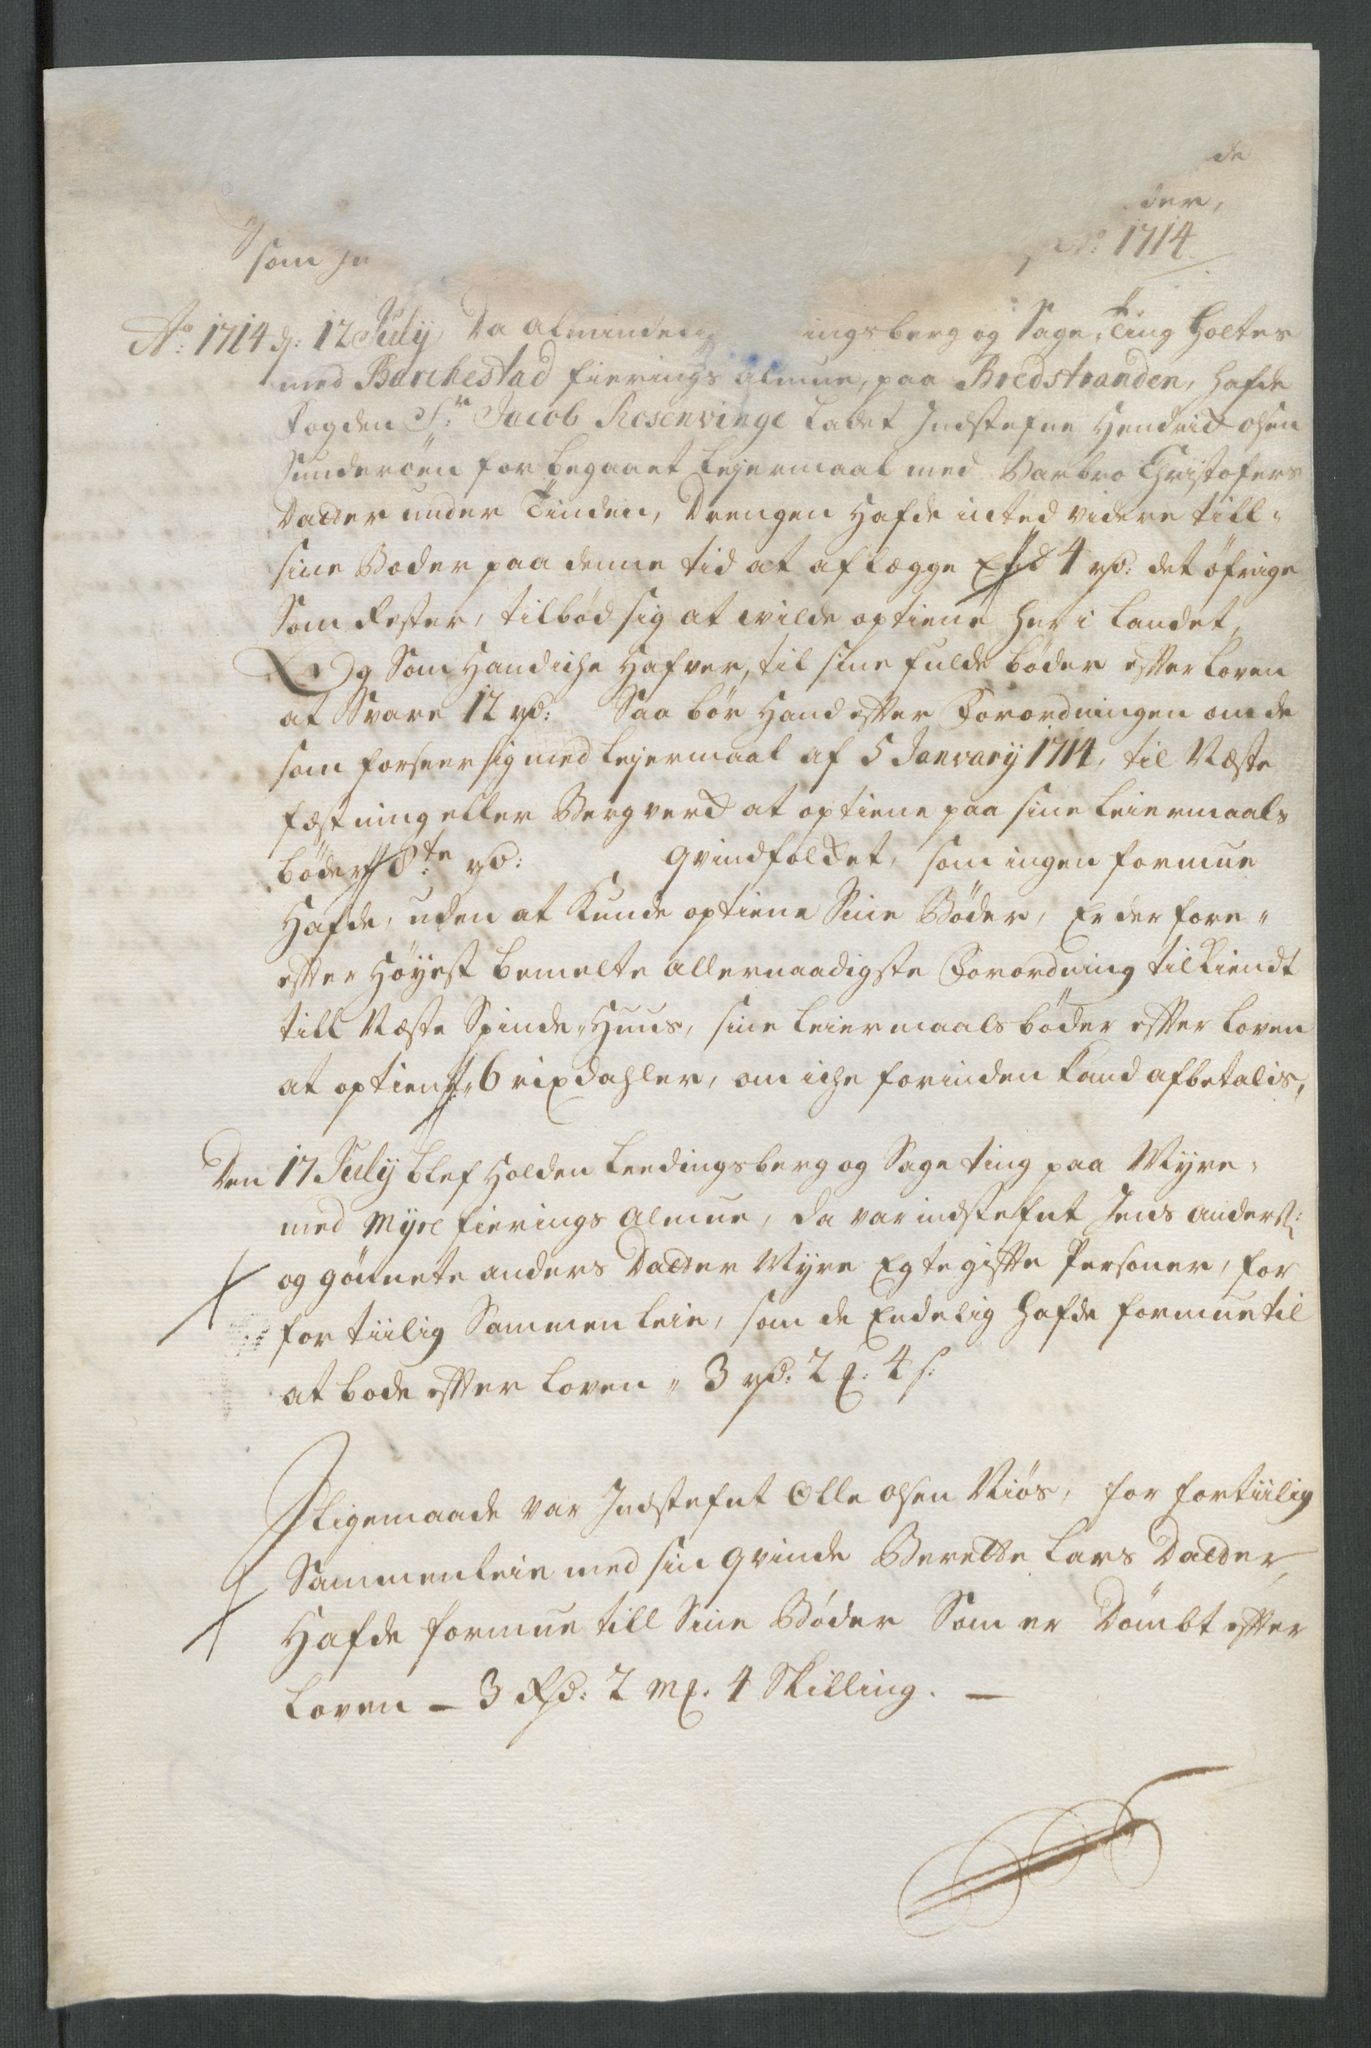 de
der,
som Ao: 1714
Ao: 1714 d: 12 July Da Alminde ingsberg og Sage-Ting Holtes
med Barchestad fierings Almue, paa Bredstranden, Hafde
fogden Sr: Jacob Rosenvinge Ladet Indstefne Hendrich olsen
Sunderöen for begaaet Lejermaal med Barbro Christofers
Datter under Tinden, Drengen Hafde inted videre till-
sine Boder paa denne tid at aflægge End 4 rd: det öfrige
Som Rester, tilbød sig at wilde optiene her i Landet,
Og Som Hand iche Hafver, til sine fulde bøder efter Loven
at Svare 12 rd: Saa bör Hand efter Forordningen om de
som forseer sig med Lejermaal af 5 Janvary 1714, til Næste
fæstning eller Bergverch at optiene paa sine Leiermaals
bøder 8te rd: Qvindfolchet, som ingen formue
Hafde, uden at Kunde optiene Sine Bøder, Er derfore-
efter Høyest bemelte Allernaadigste Forordning tilkiendt
till Næste Spinde-Huus, sine Leiermaals bøder efter Loven
at optiene, 6 rixdahler, om iche forinden kand afbetalis,
Den 17 July blef Holden Leedingsberg og Sage ting paa Myre-
med Myre fierings Almue, da var indstefnt Jens Anders:
og Gönnete Anders Datter Myre Egtegifte Personer, for
for tiilig Sammenleie, som de Endelig Hafde formue til
at bode efter Loven - 3 rd: 2 ß: 4 s:
Ligemaade var Indstefnt Olle Olsen Niös, for fortiilig
Sammenleie med sin Qvinde Berette Lars Datter,
Hafde formue till Sine Bøder Som er Dömbt efter
Loven - 3 Rd: 2 mß. 4 Skilling. -